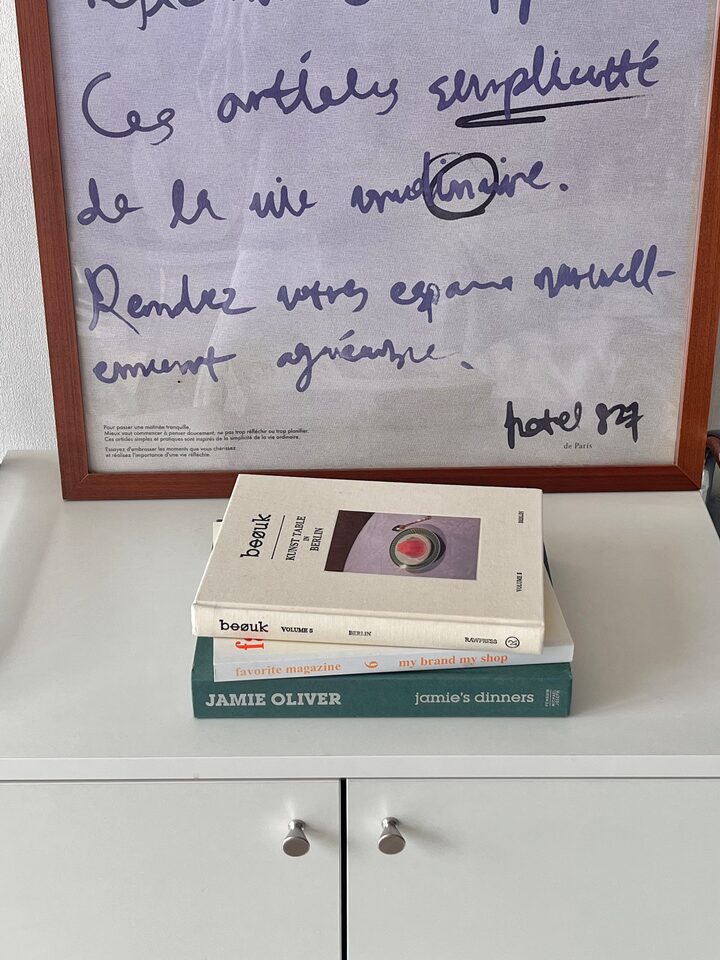 Ces articles simplicité
de la vie ordinaire.
Rendez votre espace naturell-
ement agréable.
hotel 827
de Paris
Pour passer une matinée tranquille,
Mieux vaut commencer à penser doucement, ne pas trop réfléchir ou trop planifier.
Ces articles simples et pratiques sont inspirés de la simplicité de la vie ordinaire.
Essayez d'embrasser les moments que vous chérissez
et réalisez l'importance d'une vie réfléchie.
beøuk
KUNST TABLE
IN
BERLIN
BERLIN
VOLUME 5
beøuk VOLUME 5 BERLIN RAWPRESS
favorite magazine 6 my brand my shop
JAMIE OLIVER jamie's dinners